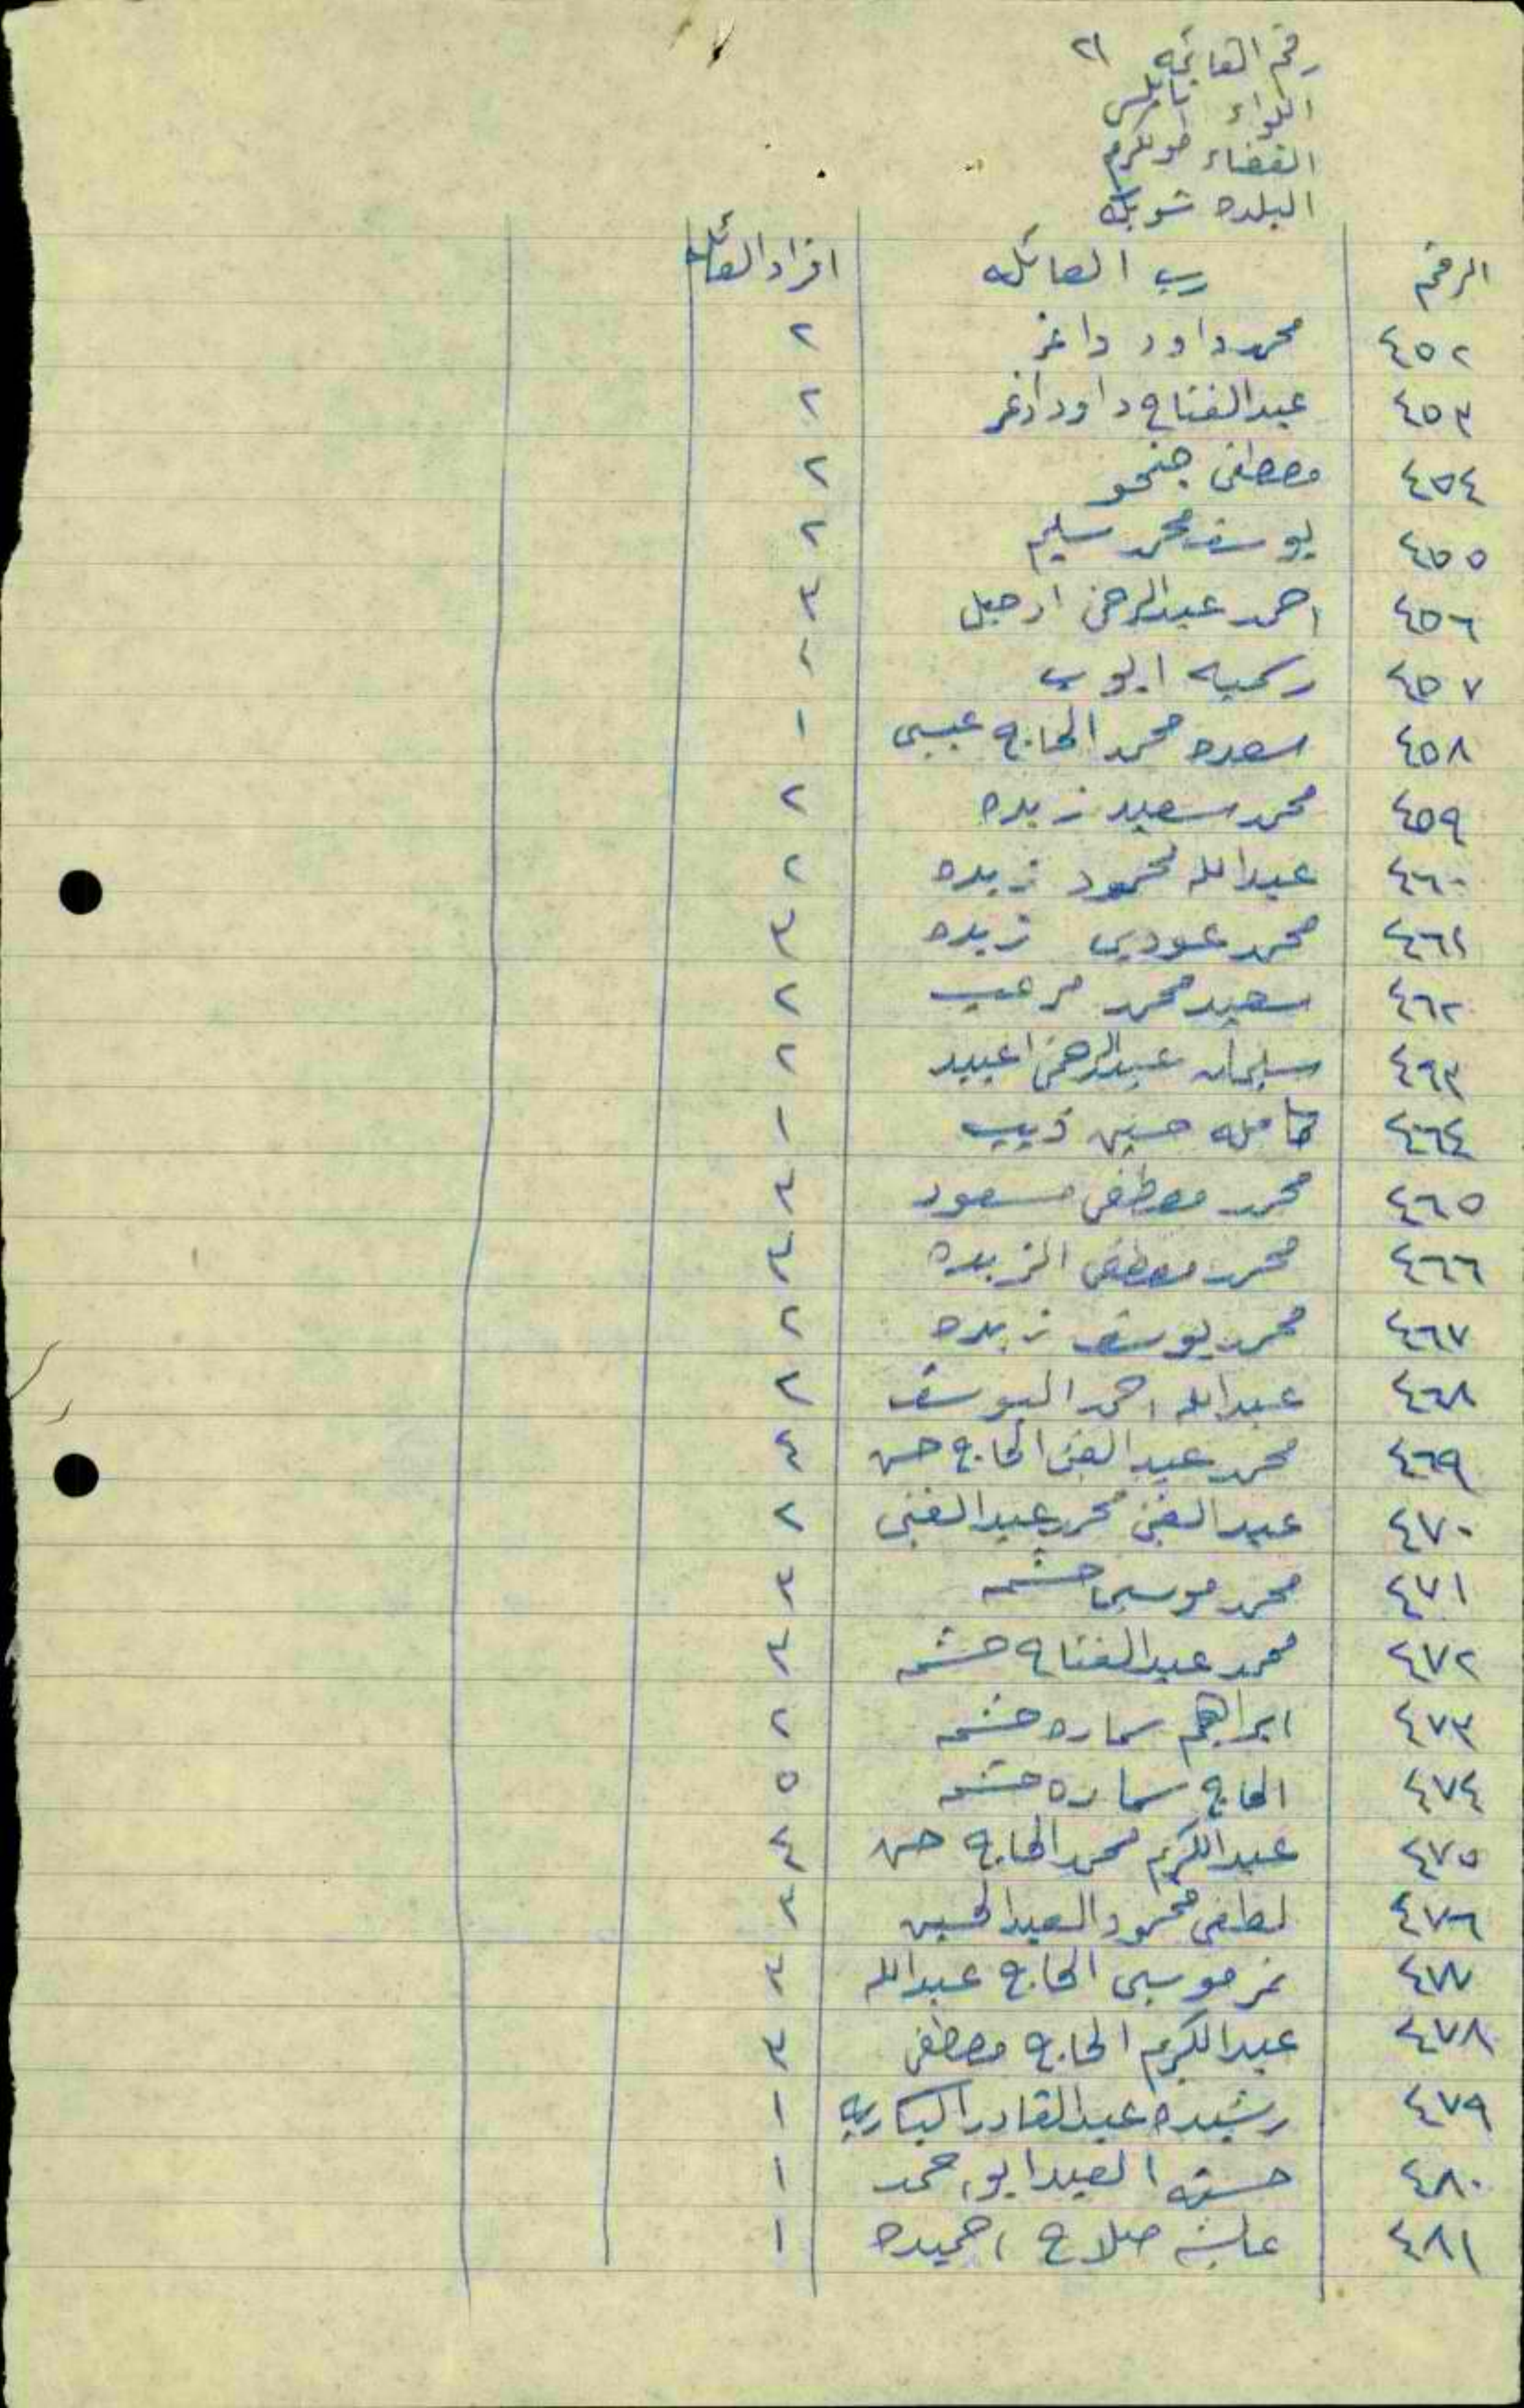 رقم القائمه ٢١
اللواء نابلس
القضاء طولكرم
البلده شويكه
الرقم رب العائله افراد العائله
٤٥٢ محمد داود داغر ٢
٤٥٣ عبدالفتاح داود اغر ٢
٤٥٤ مصطفى جنحو ٢
٤٥٥ يوسف محمد سليم ٢
٤٥٦ احمد عبدالرحمن ارحيل ٣
٤٥٧ رسميه ايوب ٢
٤٥٨ سعده محمد الحاج عيسى ١
٤٥٩ محمد سعيد زبده ٢
٤٦٠ عبدالله محمود زبده ٢
٤٦١ محمد عودى زبده ٣
٤٦٢ سعيد محمد مرعب ٢
٤٦٣ سليمان عبدالرحمن اعبيد ٢
٤٦٤ كامله حسين ذيب ١
٤٦٥ محمد مصطفى مسعود ٣
٤٦٦ محمد مصطفى الزبده ٣
٤٦٧ محمد يوسف زبده ٢
٤٦٨ عبدالله احمد اليوسف ٢
٤٦٩ محمد عبد الغنى الحاج حسن ٤
٤٧٠ عبد الغنى محمد عبد الغنى ٢
٤٧١ محمد موسى حشمه ٣
٤٧٢ محمد عبد الفتاح حشمه ٣
٤٧٣ ابراهيم سماره حشمه ٢
٤٧٤ الحاج سماره حشمه ٥
٤٧٥ عبد الكريم محمد الحاج حسن ٤
٤٧٦ لطفى محمود العبد الحسين ٣
٤٧٧ نمر موسى الحاج عبدالله ٣
٤٧٨ عبد الكريم الحاج مصطفى ٣
٤٧٩ رشيده عبد القادر البكاريه ١
٤٨٠ حسنه العبد ابو احمد ١
٤٨١ عايشه صلاح احميده ١